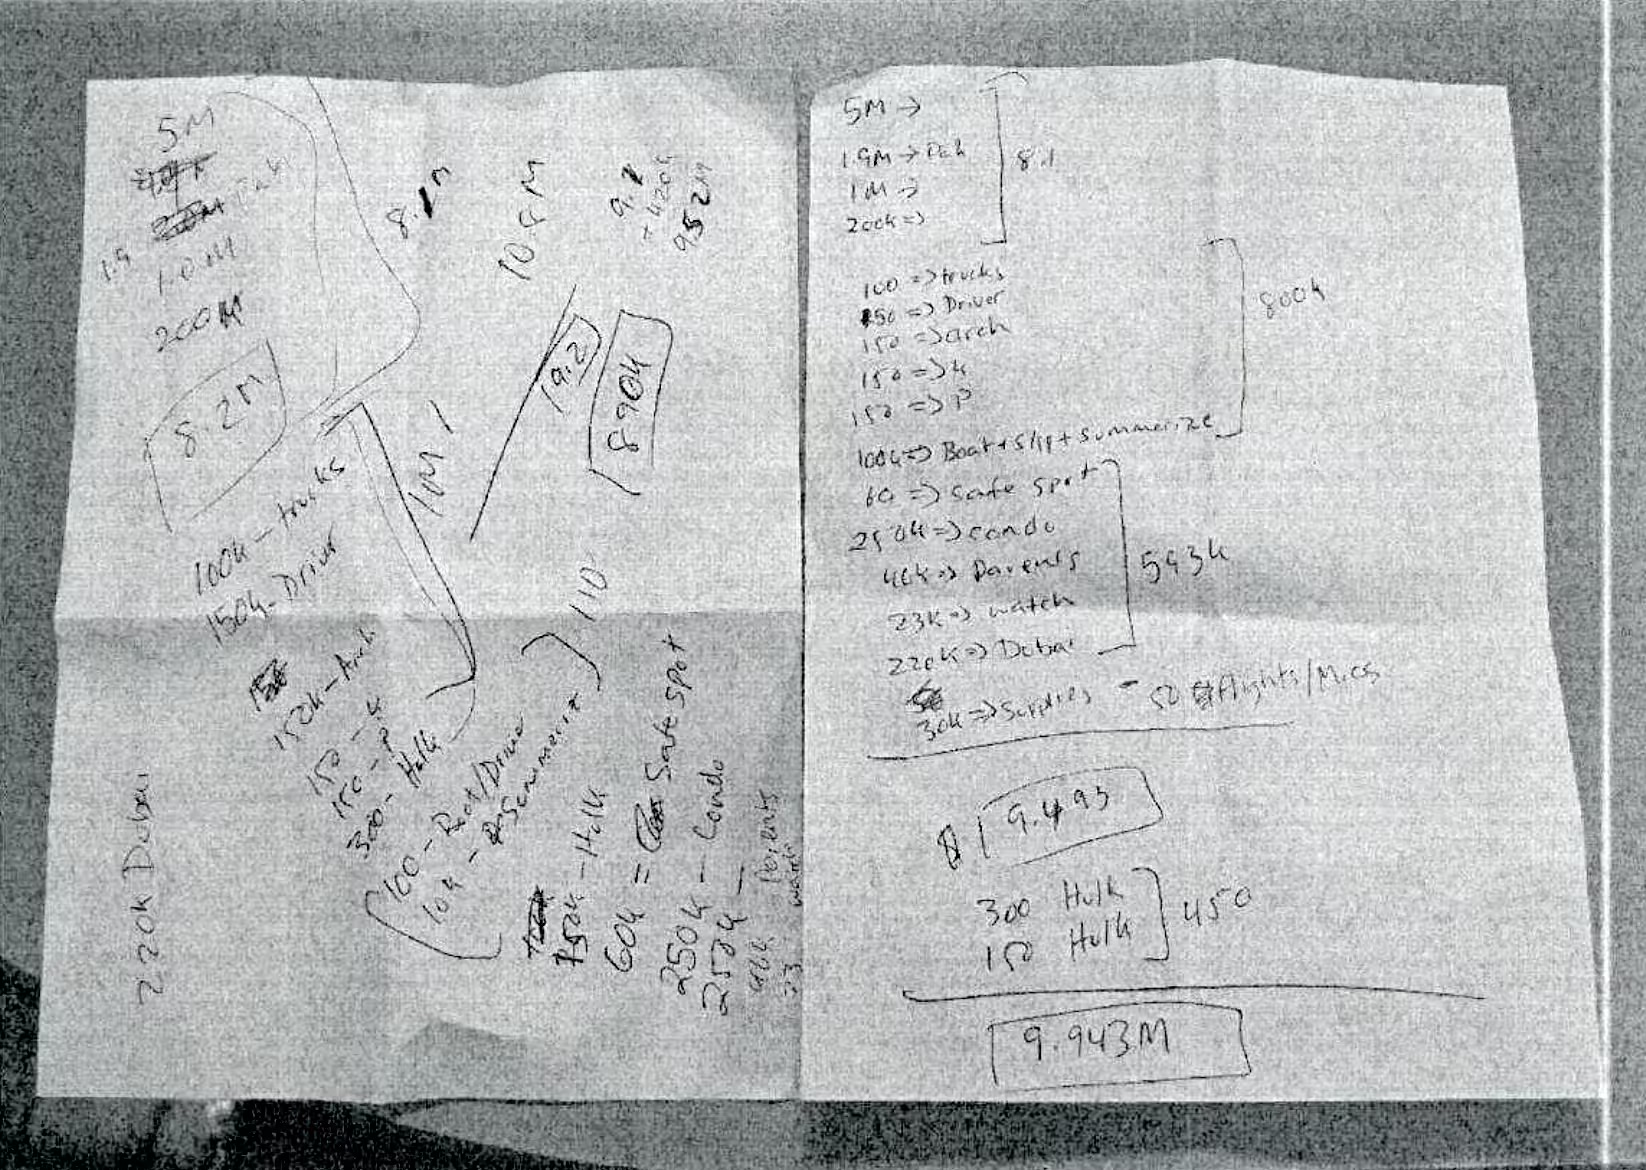 5M
1.9
1.0M
200M
8.2M
8.1M
10.8M
9.1
420k
952M
19.2
890k
1M
100k - trucks
150k - Driver
150k - Arch
150 - K
150 - P
300 - Hulk
110
150k - Hulk
60k = Safe spot
250k - Condo
250k -
46k Parents
23 watch
220k Dubai
5M →
1.9M → Pak
1M →
200k =>
8.1
100 => trucks
150 => Driver
150 => arch
150 => K
150 => P
100k => Boat + slip + summerize
800k
60 => safe spot
250k => condo
46k => Parents
23K => watch
220K => Dubai
593k
30k => Supplies - 50 Flights/Mics
9.493
300 Hulk
150 Hulk
450
9.943M